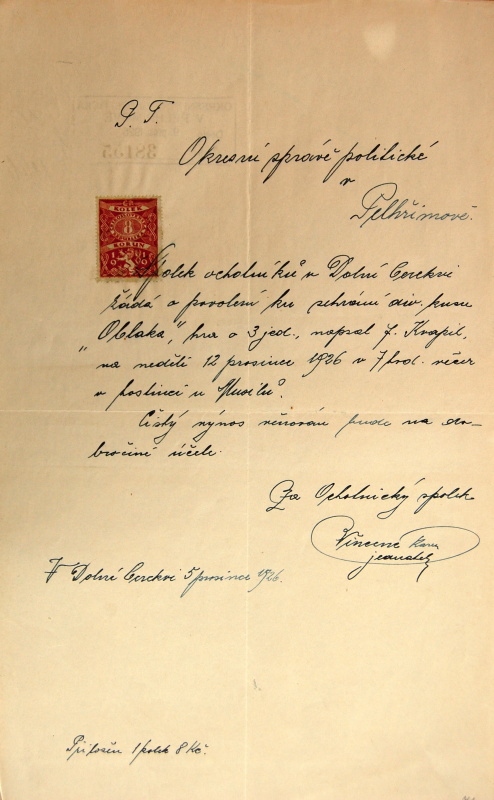 P. T.
Okresní správě politické
v
Pelhřimově.
KOLEK
8
KORUN
Spolek ochotníků v Dolní Cerekvi
žádá o povolení ku sehrání div. kusu
"Oblaka", hra o 3 jed., napsal J. Kvapil,
na neděli 12 prosince 1926 v 7 hod. večer
v hostinci u Musilů.
Čistý výnos věnován bude na do-
bročiné účele.
Za Ochotnický spolek
Vincenc Karel
jednatel
V Dolní Cerekvi 5 prosince 1926.
Přiložen 1 kolek 8 Kč.
38155